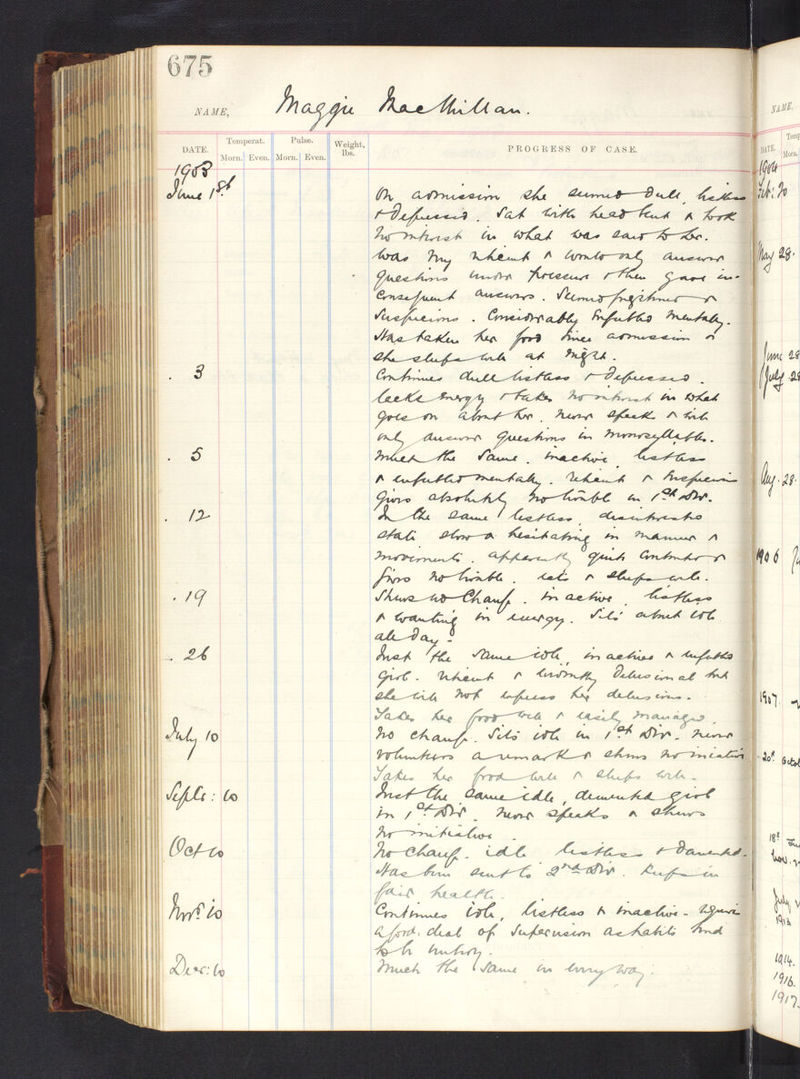 675
NAME, Maggie MacMillan.
DATE. Temperat. Pulse. Weight, lbs. PROGRESS OF CASE.
Morn. Even. Morn. Even.
1903
June 1st On admission she seemed dull, listless
& depressed. Sat with head bent & took
no interest in what was said to her.
Was very reticent & would only answer
questions under pressure & then gave in-
consequent answers. Seemed frightened &
suspicious. Considerably enfeebled mentally.
Has taken her food since admission &
she sleeps well at night.
. 3 Continues dull listless & depressed.
Lacks energy & takes no interest in what
goes on about her. Never speaks & will
only answer questions in monosyllables.
. 5 Much the same. inactive, listless
& enfeebled mentally. Reticent & suspicious
gives absolutely no trouble in 1st Div.
. 12 In the same listless, disinterested
state slow & hesitating in manner &
movements. apparently quite contented &
gives no trouble. eats & sleeps well.
. 19 Shews no change. inactive, listless
& wanting in energy. Sits about idle
all day.
. 26 Just the same idle, inactive & enfeebled
girl. Reticent & evidently delusional but
she will not express her delusions.
Takes her food well & easily managed.
July 10 No change. Sits idle in 1st Div. never
volunteers a remark & shews no initiative
Takes her food well & sleeps well.
Septr: 10 Just the same idle, demented girl
in 1st Div. Never speaks & shews
no initiative.
Oct 10 No change. idle listless & demented.
Has been sent to 2nd Div. Keeps in
fair health.
Novr 10 Continues idle, listless & inactive - requires
a good deal of supervision as habits tend
to be untidy.
Decr: 10 Much the same in every way.
NAME,
DATE. Temp
Morn.
1904
Feb: 20
May 28.
June 28
July 28
Aug. 28.
1906
1907
20th Octob
18th
Nov.
July
1913
1914.
1916.
1917.